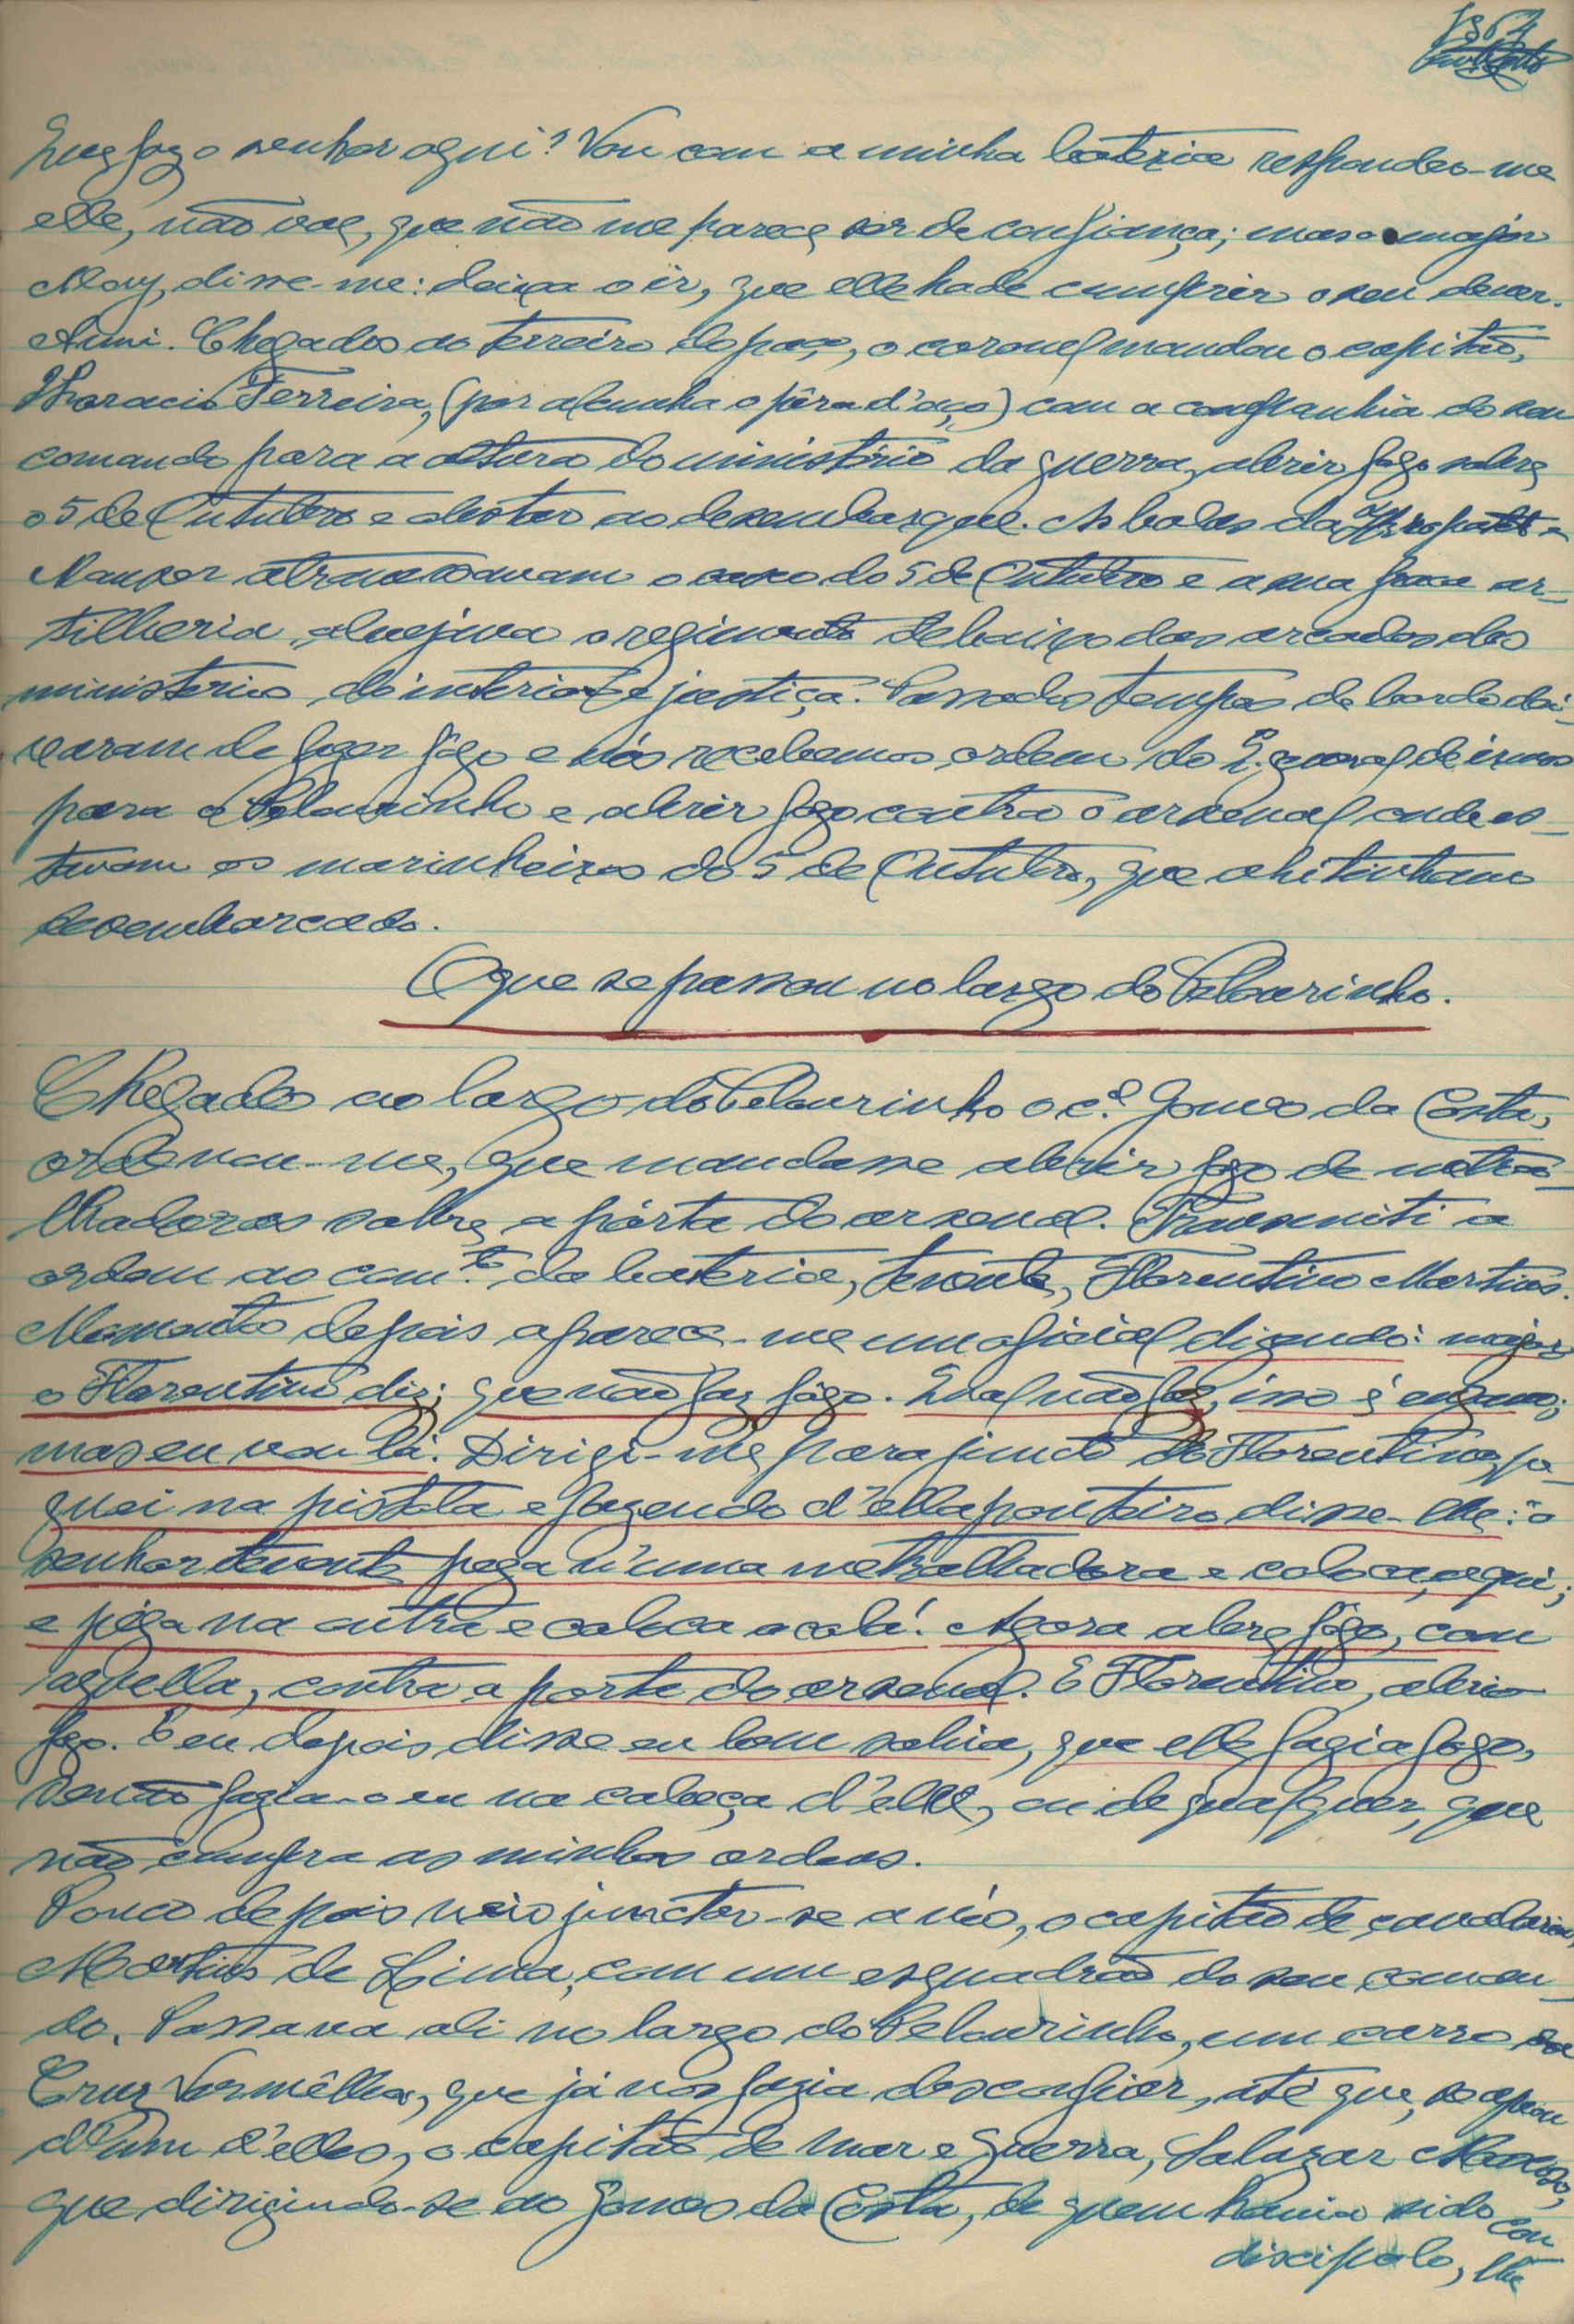 Que faz o senhor aqui? Vou com a minha bateria respondeo-me
elle, não vae, que não me parece ser de confiança; mas o major
disse-me: deixa o ir, que elle hade cumprir o seu dever.
Chegados ao terreiro do paço, o coronel mandou o capitão,
Horacio Ferreira, (por alcunha o pêra d'aço) com a companhia do seu
comando para a altura do ministério da guerra, abrir fogo sobre
o 5 de Outubro e obstar ao desembarque. As balas da
Mauser atravessavam o casco do 5 de Outubro e a sua fraca ar-
tilheria, alvejava o regimento debaixo das arcadas dos
ministerios do interior e justiça. Passados tempos de bordo dei-
xaram de fazer fôgo e nós recebemos ordem do Q. general de irmos
para o Pelourinho e abrir fogo contra o arsenal onde es-
tavam os marinheiros do 5 de Outubro, que ahi tinham
desembarcado.
O que se passou no largo do Pelourinho.
Chegados ao largo do Pelourinho o c.el Gomes da Costa,
ordenou-me, que mandasse abrir fogo de metra-
lhadoras sobre a pórta do arsenal. Transmiti a
ordem ao com.te da bateria, tenente, Florentino Martins.
Momentos depois aparece-me um oficial dizendo: major
o Florentino diz; que não faz fôgo. Qual não faz, isso é engano;
mas eu vou lá. Dirigi-me para junto do Florentino, pe-
guei na pistola e fazendo d'ella ponteiro disse-lhe: o
senhor tenente pega n'uma metralhadora e coloca, aqui;
e péga na outra e coloca acolá! Agora abre fôgo, com
aquella, contra a porta do arsenal. E Florentino, abrio
fogo. E eu depois disse eu bem sabia, que elle fazia fogo,
senão fazia-o eu na cabeça d'elle, ou de qualquer, que
não cumpra as minhas ordens.
Pouco depois veio junctar-se a nós, o capitão de cavalaria,
Martins de Lima, com um esquadrão do seu coman-
do. Passava ali no largo do Pelourinho, um carro da
Cruz Vermêlha, que já nos fazia desconfiar, até que, se apeou
d'um d'elles, o capitão de mar e guerra, Salazar Moscoso,
que dirigindo-se ao Gomes da Costa, de quem havia sido con-
discipolo, lhe